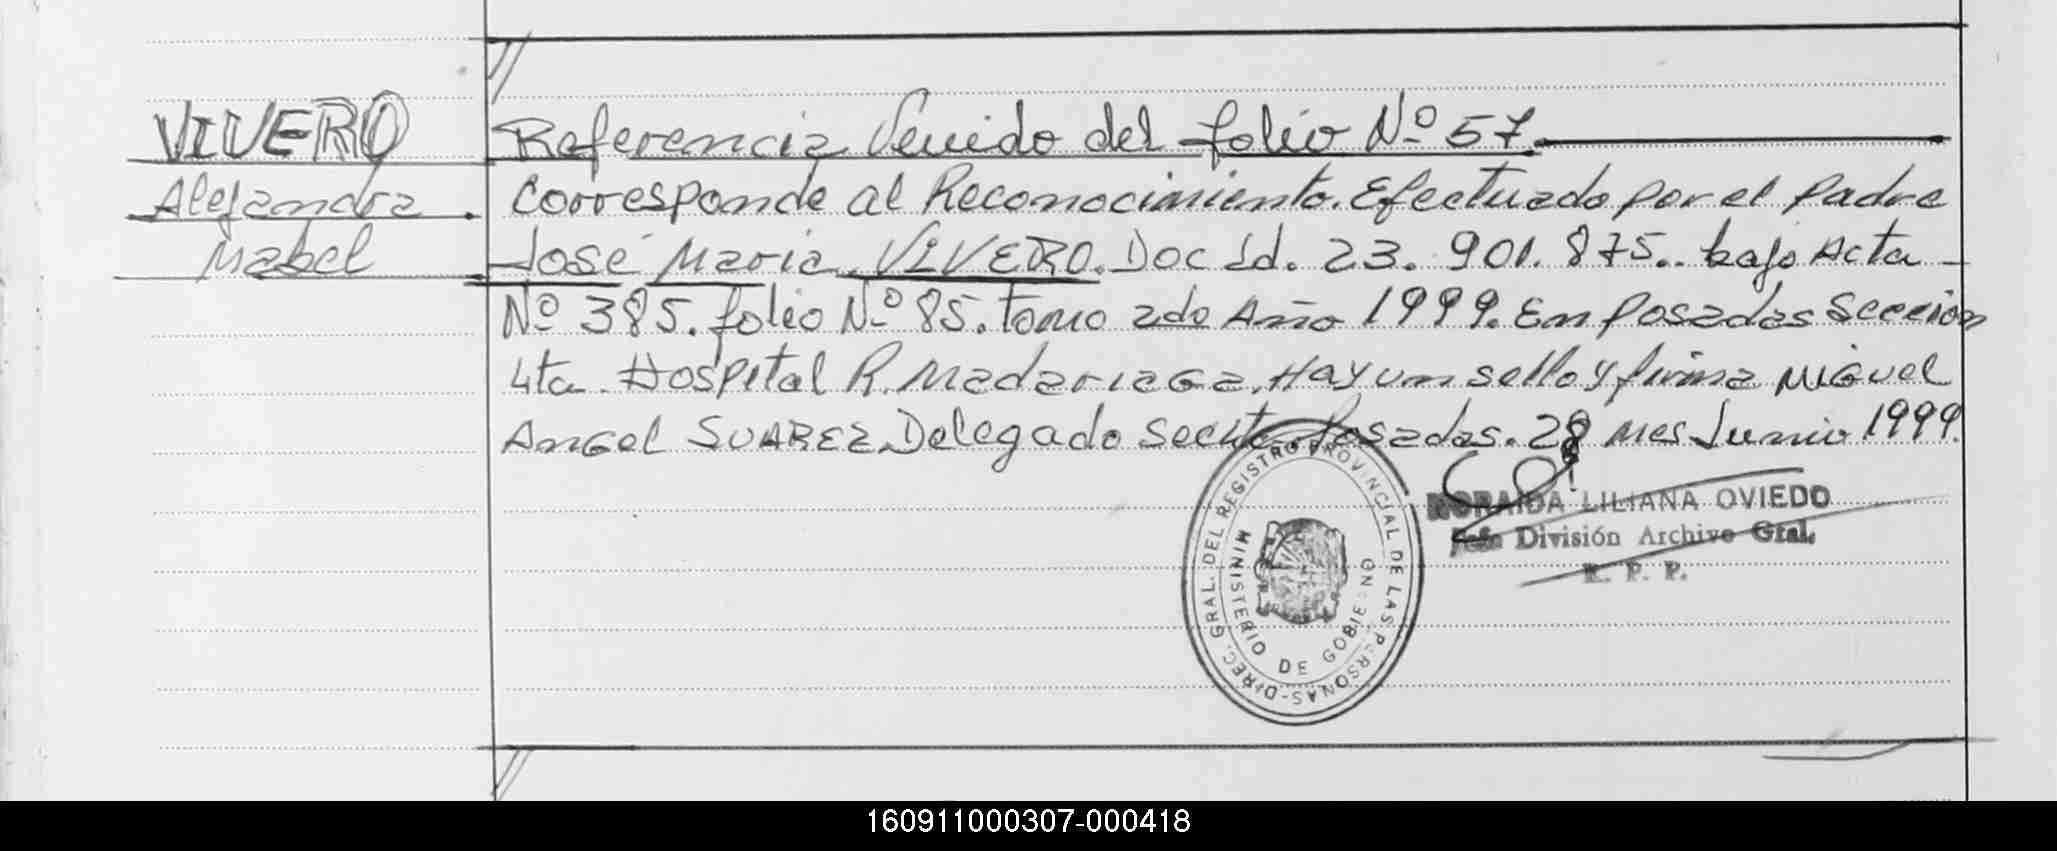 VIVERO
Alejandra
Mabel
Referencia Venido del folio Nº 57.
Corresponde al Reconocimiento. Efectuado por el Padre
José Maria VIVERO. Doc Id. 23. 901. 875.. bajo Acta
Nº 385. folio Nº 85. tomo 2do Año 1999. En Posadas Sección
4ta. Hospital R. Madariaga. Hay un sello y firma Miguel
Angel SUAREZ Delegado Posadas. 28 mes Junio 1999.
DIREC. GRAL. DEL REGISTRO PROVINCIAL DE LAS PERSONAS-
MINISTERIO DE GOBIERNO
NORAIDA LILIANA OVIEDO
Jefa División Archivo Gral.
R. P. P.
160911000307-000418